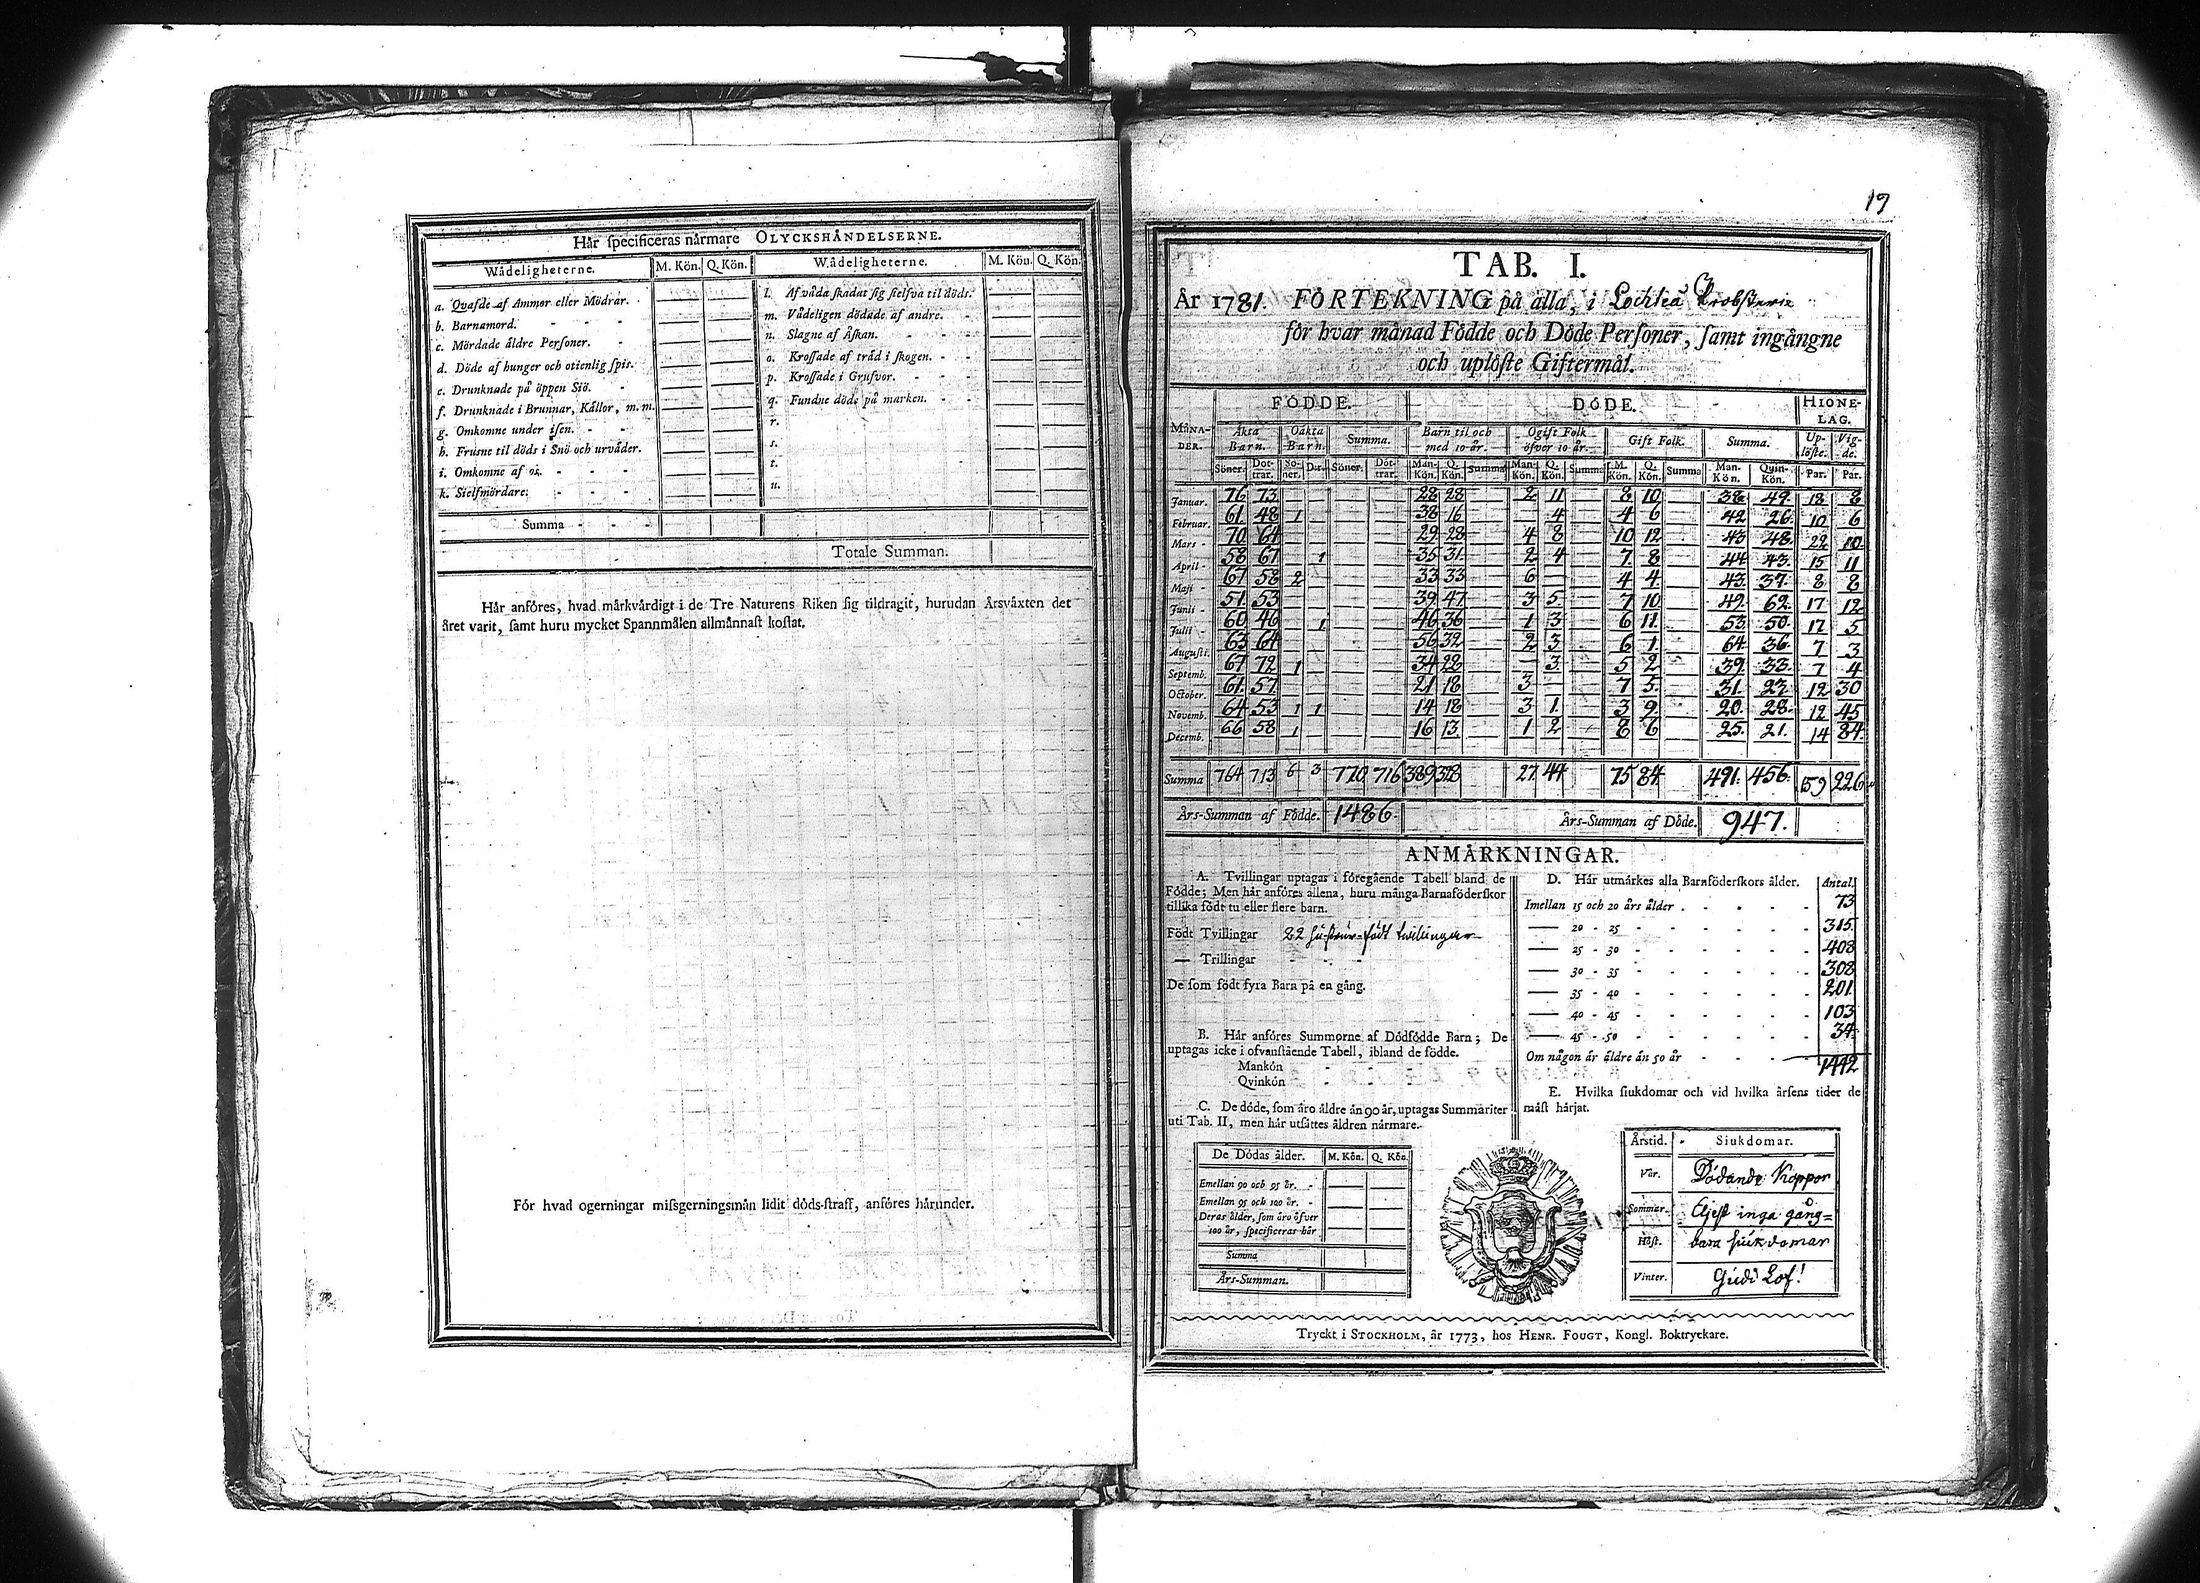 Här specificeras närmare OLYCKSHÄNDELSERNE.
Wådeligheterne. M. Kön. Q. Kön. Wådeligheterne. M. Kön. Q. Kön.
a. Qvafde af Ammor eller Mödrar. l. Af våda skadat sig sielfva til döds.
b. Barnamord. m. Vådeligen dödade af andre.
c. Mördade äldre Personer. n. Slagne af Åskan.
d. Döde af hunger och otienlig spis. o. Krossade af träd i skogen.
e. Drunknade på öppen Siö. p. Krossade i Grufvor.
f. Drunknade i Brunnar, Kållor, m. m. q. Fundne döde på marken.
g. Omkomne under isen. r.
h. Frusne til döds i Snö och urväder. s.
i. Omkomne af os. t.
k. Sielfmördare. u.
Summa
Totale Summan.
Här anföres, hvad märkvärdigt i de Tre Naturens Riken sig tildragit, hurudan Årsväxten det
året varit, samt huru mycket Spannmålen allmännast kostat.
För hvad ogerningar missgerningsmän lidit döds-straff, anföres härunder.
19
TAB. I.
År 1781. FÖRTEKNING på alla, i Lochteå Probsterie
för hvar månad Födde och Döde Personer, samt ingångne
och uplöste Giftermål.
FÖDDE. DÖDE. HIONELAG.
MÅNADER. Äkta Barn. Oäkta Barn. Summa. Barn til och med 10 år. Ogift Folk öfver 10 år. Gift Folk. Summa. Uplöste. Vigde.
Söner. Döttrar. Söner. D:r. Söner. Döttrar. Man-Kön. Q. Kön. Summa Man-Kön. Q. Kön. Summa M. Kön. Q. Kön. Summa Man-Kön. Quin-Kön. Par. Par.
Januar. 76 73 28 28 2 11 8 10 38 49 18 8
Februar. 61 48 1 38 16 4 4 6 42 26 10 6
Mars 70 64 29 28 4 8 10 12 43 48 22 10
April 58 67 1 35 31 2 4 7 8 44 43 15 11
Maji 67 58 2 33 33 6 4 4 43 37 8 8
Junii 51 53 39 47 3 5 7 10 49 62 17 12
Julii 60 46 1 46 36 1 3 6 11 53 50 17 5
Augusti. 63 64 56 32 2 3 6 1 64 36 7 3
Septemb. 67 72 1 34 28 3 5 2 39 33 7 4
October. 61 57 21 18 3 7 5 31 23 12 30
Novemb. 64 53 1 1 14 18 3 1 3 9 20 28 12 45
Decemb. 66 58 1 16 13 1 2 8 6 25 21 14 84
Summa 764 713 6 3 770 716 389 328 27 44 75 84 491 456 159 226
Års-Summan af Födde. 1486 Års-Summan af Döde. 947.
ANMÄRKNINGAR.
A. Tvillingar uptagas i föregående Tabell bland de
Födde; Men här anföres allena, huru många Barnaföderskor
tillika födt tu eller flere barn.
Födt Tvillingar 22 hustrur födt twillingar
— Trillingar
De som födt fyra Barn på en gång.
B. Här anföres Summorne af Dödfödde Barn; De
uptagas icke i ofvanstående Tabell, ibland de födde.
Mankön
Qvinkön
C. De döde, som äro äldre än 90 år, uptagas Summariter
uti Tab. II, men här utsättes åldren närmare.
De Dödas ålder. M. Kön. Q. Kön.
Emellan 90 och 95 år.
Emellan 95 och 100 år.
Deras ålder, som äro öfver
100 år, specificeras här
Summa
Års-Summan.
D. Här utmärkes alla Barnföderskors ålder. Antal.
Imellan 15 och 20 års ålder 73
— 20 - 25 315
— 25 - 30 408
— 30 - 35 308
— 35 - 40 201
— 40 - 45 103
— 45 - 50 34
Om någon är äldre än 50 år
1442
E. Hvilka siukdomar och vid hvilka årsens tider de
mäst härjat.
Årstid. Siukdomar.
Vår. Dödande Koppor
Sommar. Eljest inga gång=
Höst. bara siukdomar
Vinter. Gudi Lof!
Tryckt i STOCKHOLM, år 1773, hos HENR. FOUGT, Kongl. Boktryckare.